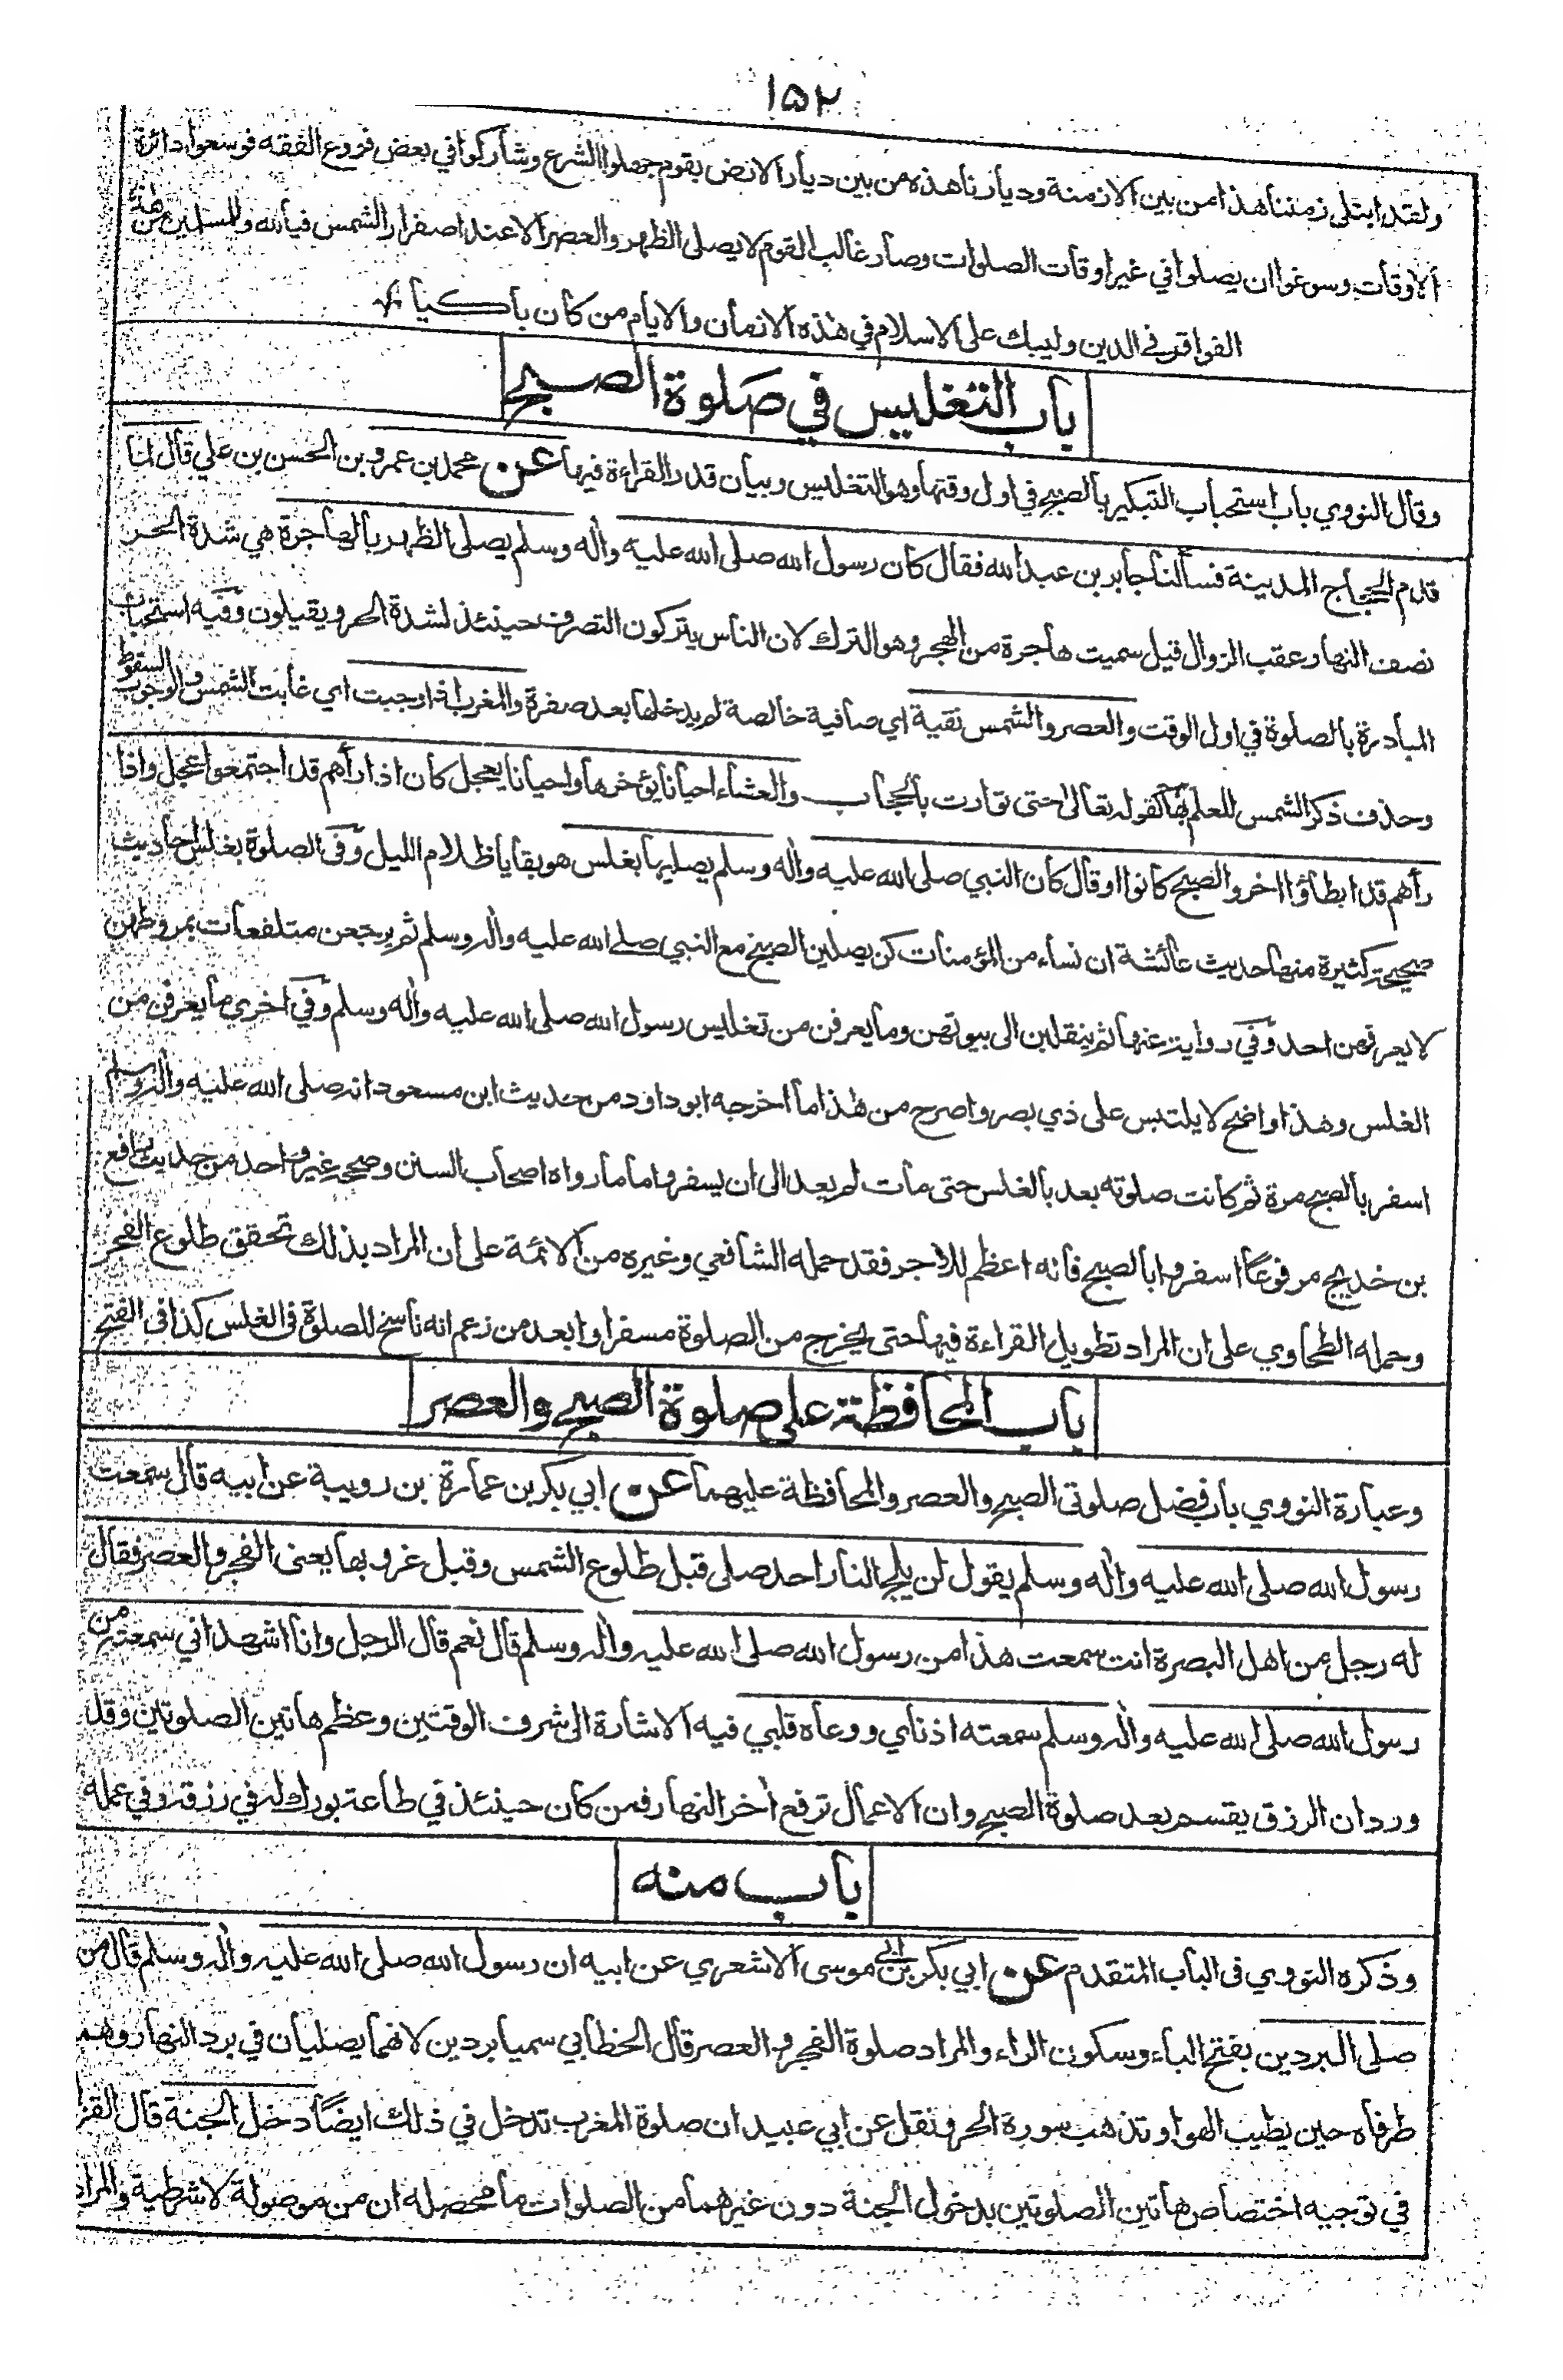 ١٥٢
ولقد ابتلى زمننا هذا من بين الازمنة وديارنا هذه من بين ديار الارض بقوم جهلوا الشرع وشاركوا في بعض فروع الفقه فوسعوا دائرة
الاوقات وسوغوا ان يصلوا في غير اوقات الصلوات وصار غالب القوم لا يصلى الظهر والعصر الا عند اصفرار الشمس فيا لله وللمسلمين من هذه
الفواقر في الدين وليبك على الاسلام في هذه الازمان والايام من كان باكيا
باب التغليس في صلوة الصبح
وقال النووي باب استحباب التبكير بالصبح في اول وقتها وهو التغليس وبيان قدر القراءة فيها عن محمد بن عمرو بن الحسن بن علي قال لما
قدم الحجاج المدينة فسألنا جابر بن عبد الله فقال كان رسول الله صلى الله عليه واله وسلم يصلى الظهر بالهاجرة هي شدة الحر
نصف النهار عقب الزوال قيل سميت هاجرة من الهجر وهو الترك لان الناس يتركون التصرف حينئذ لشدة الحر ويقيلون وفيه استحباب
المبادرة بالصلوة في اول الوقت والعصر والشمس نقية اي صافية خالصة لم يدخلها بعد صفرة والمغرب اذا وجبت اي غابت الشمس والوجوب السقوط
وحذف ذكر الشمس للعلم بها كقوله تعالى حتى توارت بالحجاب والعشاء احيانا يؤخرها واحيانا يعجل كان اذا رأهم قد اجتمعوا عجل واذا
رأهم قد ابطأوا اخر والصبح كانوا او قال كان النبي صلى الله عليه واله وسلم يصليها بغلس هو بقايا ظلام الليل وفى الصلوة بغلس احاديث
صحيحة كثيرة منها حديث عائشة ان نساء من المؤمنات كن يصلين الصبح مع النبي صلے الله عليه واله وسلم ثم يرجعن متلفعات بمروطهن
لا يعرفهن احد وفي رواية عنها ثم ينقلبن الى بيوتهن وما يعرفن من تغليس رسول الله صلى الله عليه واله وسلم وفي اخرى ما يعرفن من
الغلس وهذا واضح لا يلتبس على ذي بصر واصرح من هذا ما اخرجه ابو داود من حديث ابن مسعود انه صلى الله عليه واله وسلم
اسفر بالصبح مرة ثم كانت صلوته بعد بالغلس حتى مات لم يعد الى ان يسفر واما ما رواه اصحاب السنن وصححه غير واحد من حديث رافع
بن خديج مرفوعًا اسفروا بالصبح فانه اعظم للاجر فقد حمله الشافعي وغيره من الائمة على ان المراد بذلك تحقق طلوع الفجر
وحمله الطحاوي على ان المراد تطويل القراءة فيها حتى يخرج من الصلوة مسفرا وابعد من زعم انه ناسخ للصلوة فى الغلس كذا فى الفتح
باب المحافظة على صلوة الصبح والعصر
وعبارة النووي باب فضل صلوتى الصبح والعصر والمحافظة عليهما عن ابي بكر بن عمارة بن رويبة عن ابيه قال سمعت
رسول الله صلى الله عليه واله وسلم يقول لن يلج النار احد صلى قبل طلوع الشمس وقبل غروبها يعنى الفجر والعصر فقال
له رجل من اهل البصرة انت سمعت هذا من رسول الله صلى الله عليه واله وسلم قال نعم قال الرجل وانا اشهد اني سمعته من
رسول الله صلى الله عليه واله وسلم سمعته اذناي ووعاه قلبي فيه الاشارة الى شرف الوقتين وعظم هاتين الصلوتين وقد
ورد ان الرزق يقسم بعد صلوة الصبح وان الاعمال ترفع اخر النهار فمن كان حينئذ في طاعة بورك له في رزقه وفي عمله
باب منه
وذكره النووي فى الباب المتقدم عن ابي بكر بن ابي موسى الاشعري عن ابيه ان رسول الله صلى الله عليه واله وسلم قال من
صلى البردين بفتح الباء وسكون الراء والمراد صلوة الفجر والعصر قال الخطابي سميا بردين لانهما يصليان في برد النهار وهما
طرفاه حين يطيب الهوا وتذهب سورة الحر ونقل عن ابي عبيد ان صلوة المغرب تدخل في ذلك ايضًا دخل الجنة قال القزاز
في توجيه اختصاص هاتين الصلوتين بدخول الجنة دون غيرهما من الصلوات ما محصله ان من موصولة لا شرطية والمراد